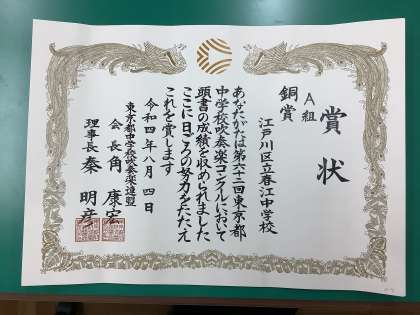 賞状
A組
銅賞
江戸川区立春江中学校
あなたがたは第六十二回東京都
中学校吹奏楽コンクールにおいて
頭書の成績を収められました
ここに日ごろの努力をたたえ
これを賞します
令和四年八月四日
東京都中学校吹奏楽連盟
会長 角 康宏
理事長 秦 明彦